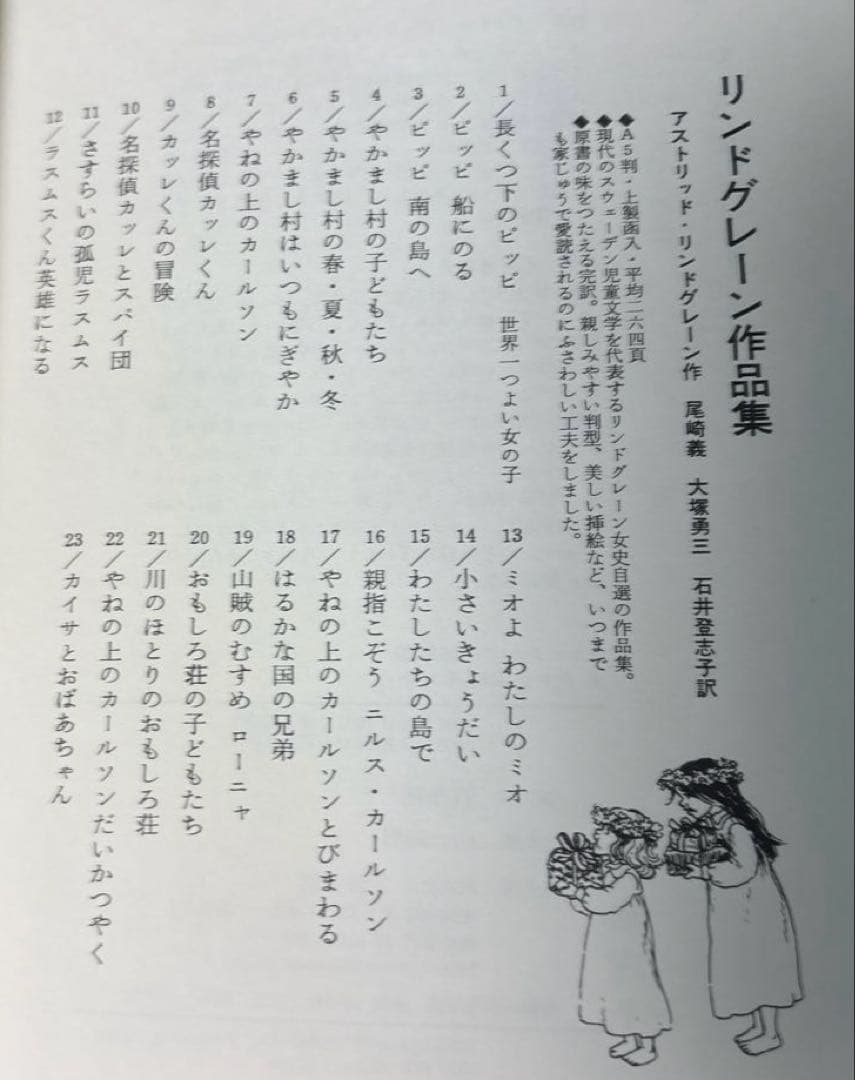 リンドグレーン作品集
アストリッド・リンドグレーン作　尾崎義　大塚勇三　石井登志子訳
◆A5判・上製函入・平均二六四頁
◆現代のスウェーデン児童文学を代表するリンドグレーン女史自選の作品集。
◆原書の味をつたえる完訳。親しみやすい判型、美しい挿絵など、いつまで
も家じゅうで愛読されるのにふさわしい工夫をしました。
1／長くつ下のピッピ　世界一つよい女の子
2／ピッピ　船にのる
3／ピッピ　南の島へ
4／やかまし村の子どもたち
5／やかまし村の春・夏・秋・冬
6／やかまし村はいつもにぎやか
7／やねの上のカールソン
8／名探偵カッレくん
9／カッレくんの冒険
10／名探偵カッレとスパイ団
11／さすらいの孤児ラスムス
12／ラスムスくん英雄になる
13／ミオよ　わたしのミオ
14／小さいきょうだい
15／わたしたちの島で
16／親指こぞう　ニルス・カールソン
17／やねの上のカールソンとびまわる
18／はるかな国の兄弟
19／山賊のむすめ　ローニャ
20／おもしろ荘の子どもたち
21／川のほとりのおもしろ荘
22／やねの上のカールソンだいかつやく
23／カイサとおばあちゃん